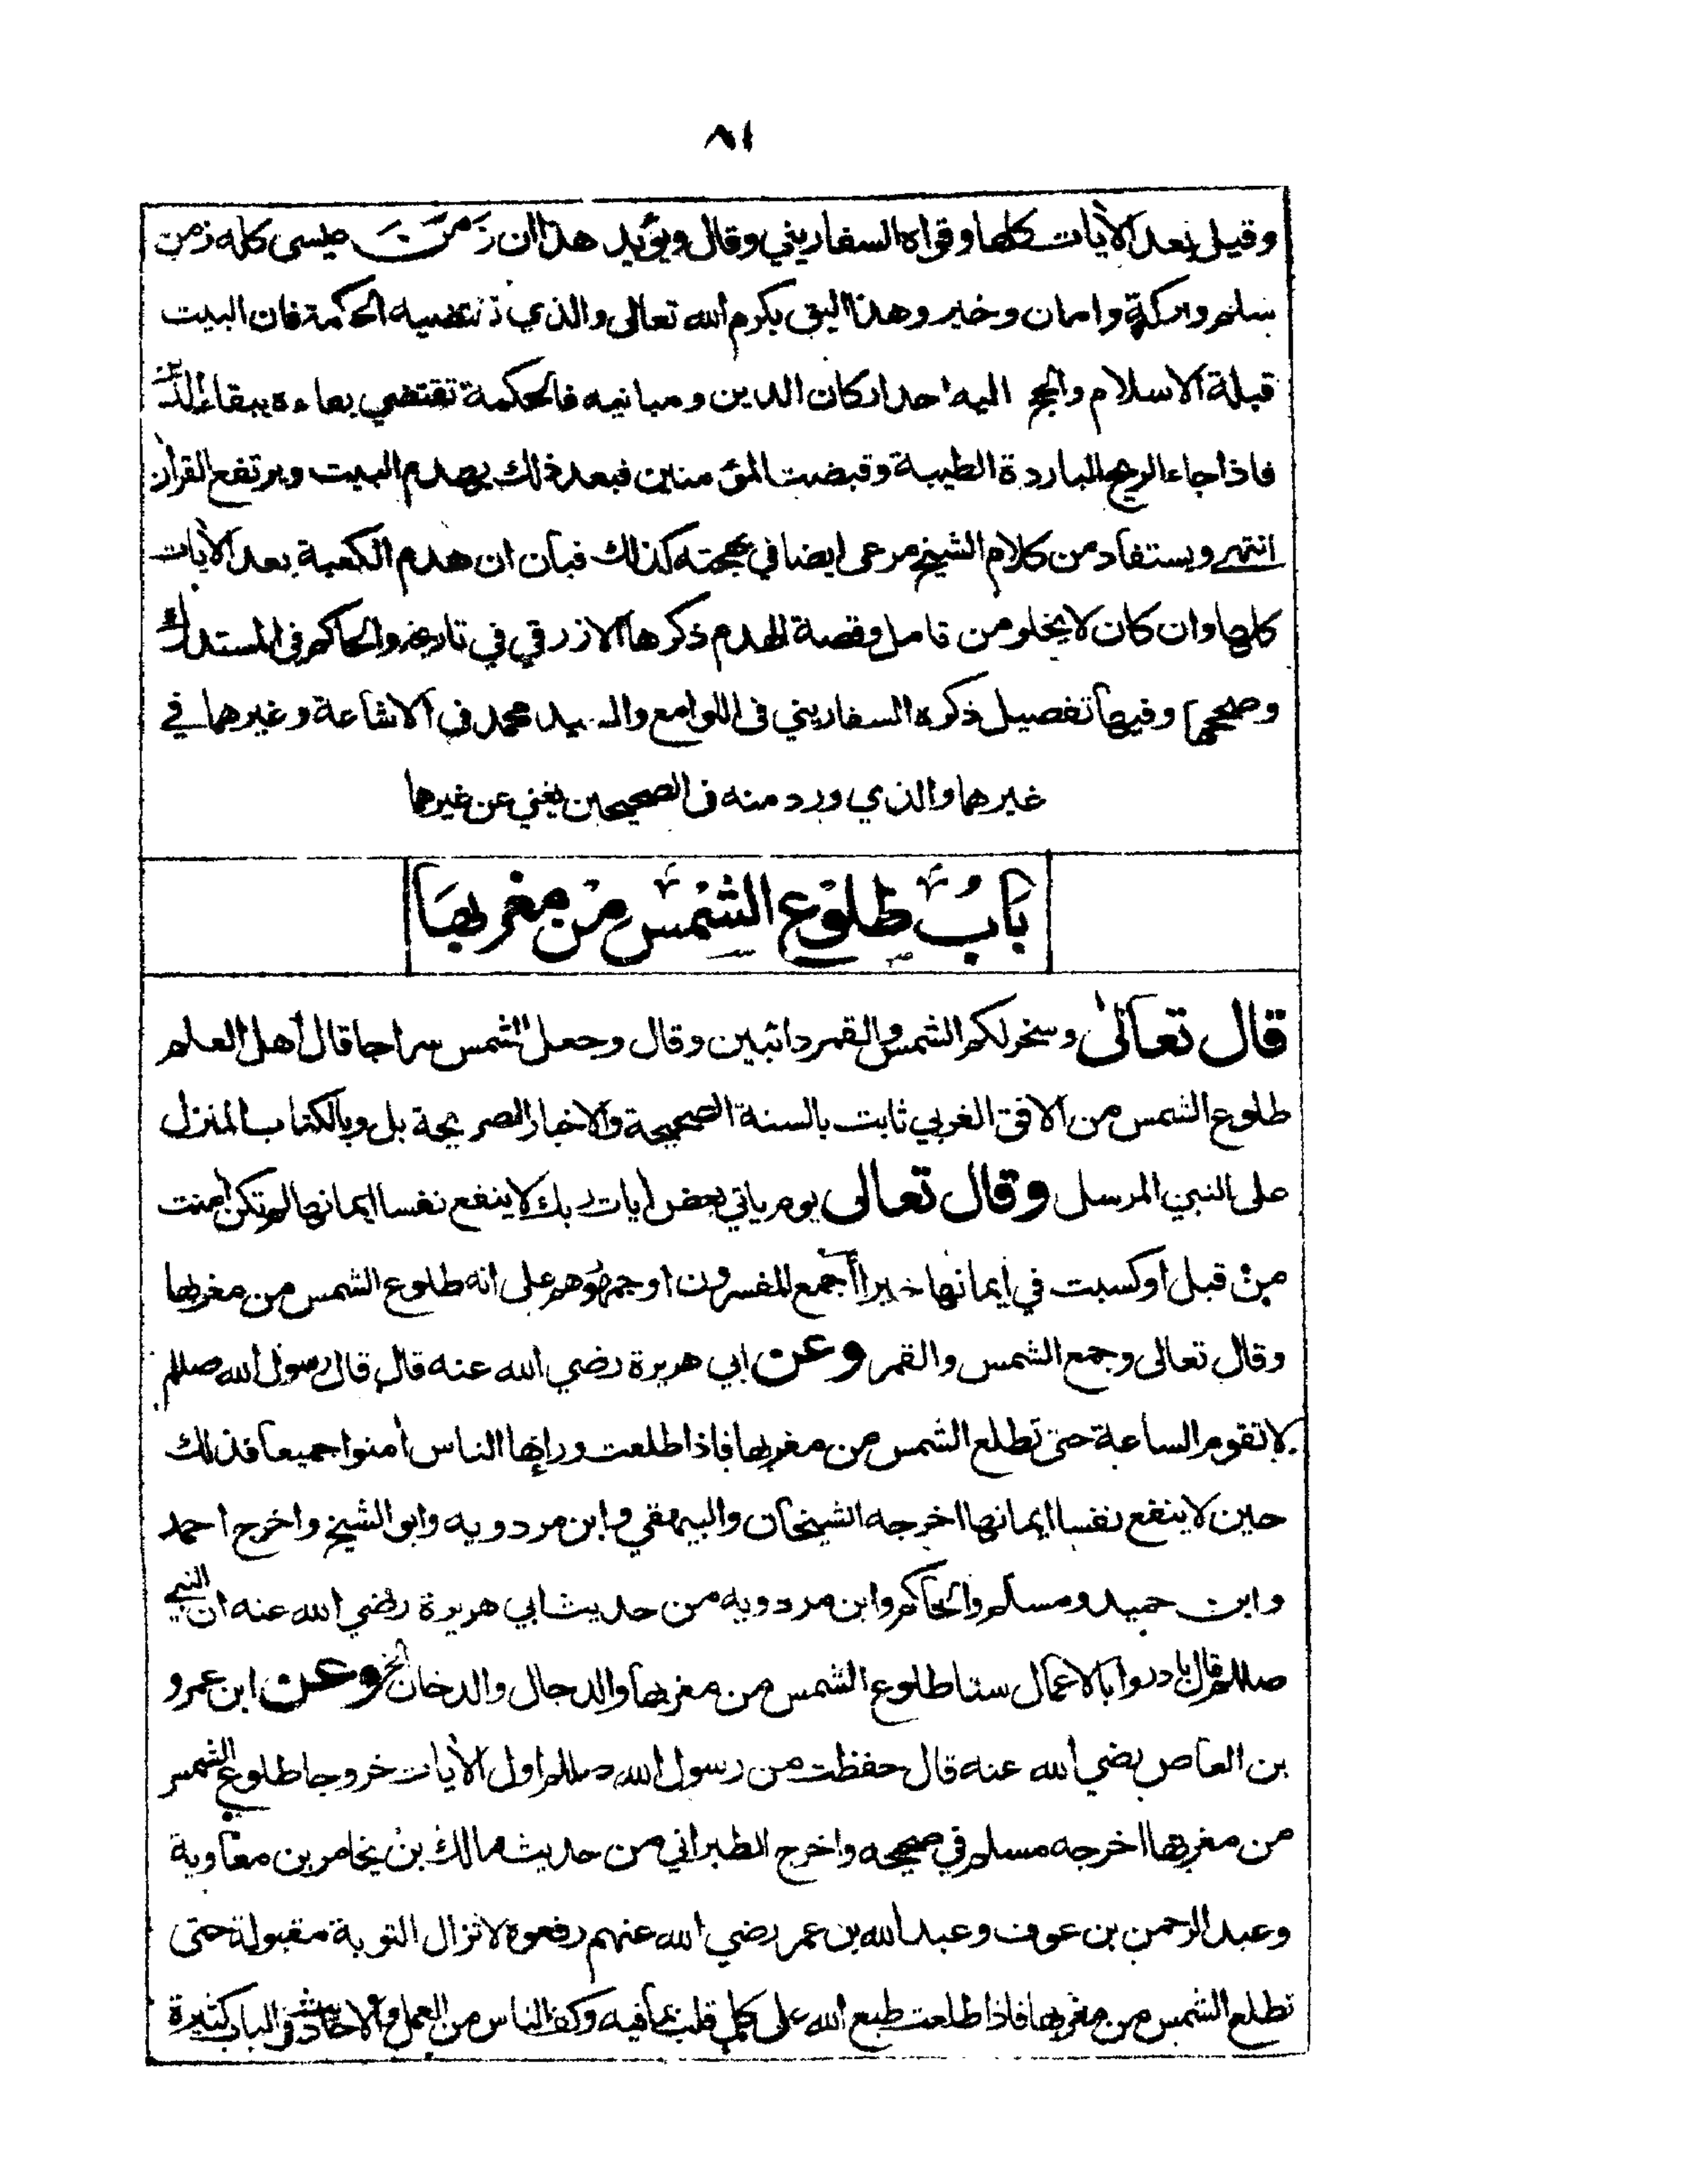 ٨١
وقيل بعد الأيات كلها وقواه السفاريني وقال ويؤيد هذا ان زمن عيسى كله زمن
سلم وبركة وامان وخير وهذا اليق بكرم الله تعالى والذي تقتضيه الحكمة فان البيت
قبلة الاسلام والحج اليه احد اركان الدين ومبانيه فالحكمة تقتضي بقاءه ببقاء الدين
فاذا جاء الريح الباردة الطيبة وقبضت المؤمنين فبعد ذلك يهدم البيت ويرتفع القرأن
انتهى ويستفاد من كلام الشيخ مرعى ايضا في بهجته كذلك فبان ان هدم الكعبة بعد الأيات
كلها وان كان لا يخلو من تامل وقصة الهدم ذكرها الازرقي في تاريخه والحاكم في المستدرك
وصححها وفيها تفصيل ذكره السفاريني في اللوامع والسيد محمد في الاشاعة وغيرهما في
غيرهما والذي ورد منه في الصحيحين يغني عن غيرهما
باب طلوع الشمس من مغربها
قال تعالى وسخر لكم الشمس والقمر دائبين وقال وجعل الشمس سراجا قال أهل العلم
طلوع الشمس من الافق الغربي ثابت بالسنة الصحيحة والاخبار الصريحة بل وبالكتاب المنزل
على النبي المرسل وقال تعالى يوم ياتي بعض أيات ربك لا ينفع نفسا ايمانها لم تكن أمنت
من قبل او كسبت في ايمانها خيرا أجمع المفسرون او جمهورهم على انه طلوع الشمس من مغربها
وقال تعالى وجمع الشمس والقمر وعن ابي هريرة رضي الله عنه قال قال رسول الله صللم
لا تقوم الساعة حتى تطلع الشمس من مغربها فاذا طلعت ورأها الناس أمنوا جميعا فذلك
حين لا ينفع نفسا ايمانها اخرجه الشيخان والبيهقي وابن مردويه وابو الشيخ واخرج احمد
وابن حميد ومسلم والحاكم وابن مردويه من حديث ابي هريرة رضي الله عنه ان النبي
صللم قال بادروا بالاعمال ستا طلوع الشمس من مغربها والدجال والدخان الخ وعن ابن عمرو
بن العاص رضي الله عنه قال حفظت من رسول الله صللم اول الأيات خروجا طلوع الشمس
من مغربها اخرجه مسلم في صحيحه واخرج الطبراني من حديث مالك بن يخامر بن معاوية
وعبد الرحمن بن عوف وعبد الله بن عمر رضي الله عنهم رفعوه لا تزال التوبة مقبولة حتى
تطلع الشمس من مغربها فاذا طلعت طبع الله على كل قلب بما فيه وكف الناس من العمل والاحاديث في الباب كثيرة